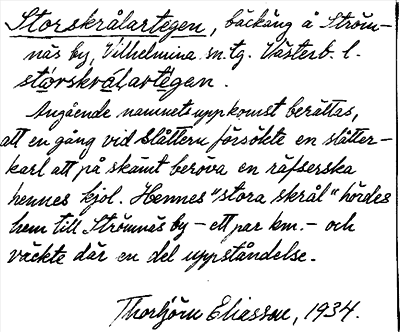 Storskrålartegen, bäckäng å Ström-
näs by, Vilhelmina sn. tg. Västerb. l.
stórskrálartegen.
Angående namnets uppkomst berättas,
att en gång vid slåttern försökte en slåtter-
karl att på skämt beröva en räfserska
hennes kjol. Hennes "stora skrål" hördes
hem till Strömnäs by – ett par km. – och
väckte där en del uppståndelse.
Thorbjörn Eliasson, 1934.